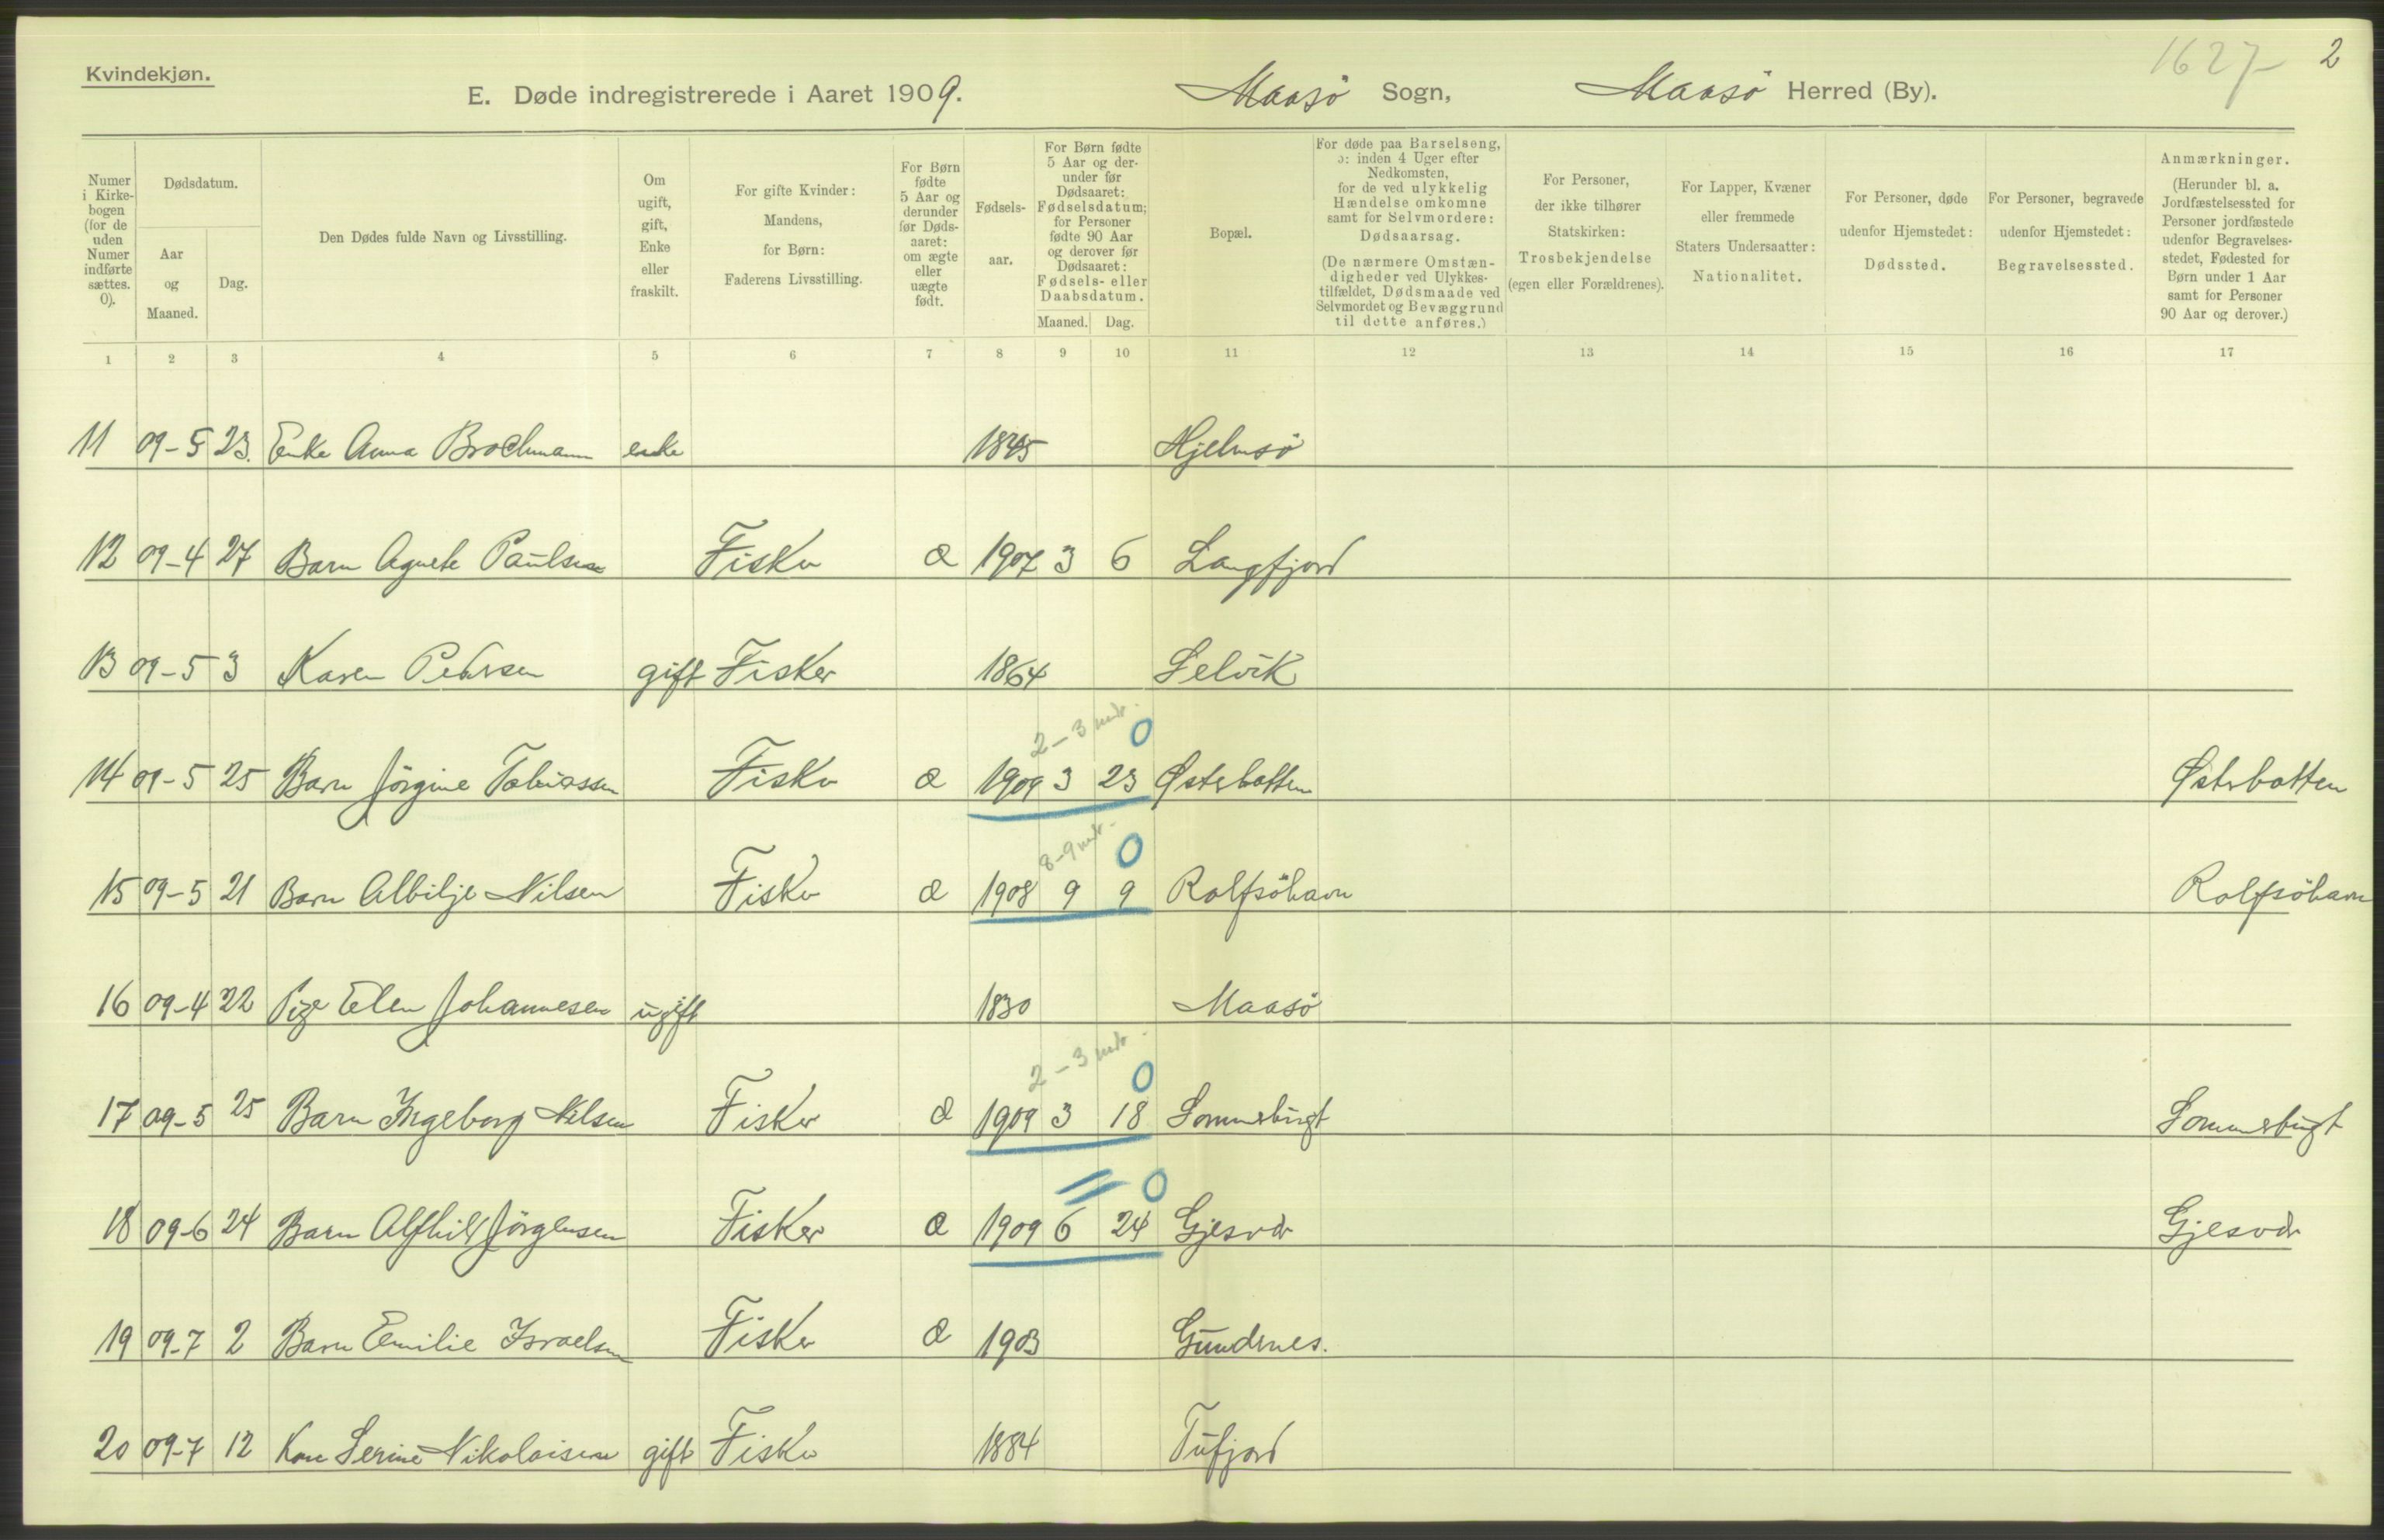 Kvindekjøn.
1627
2
E. Døde indregistrerede i Aaret 1909. Maasö Sogn, Maasö Herred (By).
Numer i Kirkebogen (for de uden Numer indførte sættes. O).
Dødsdatum.
Aar og Maaned.
Dag.
Den Dødes fulde Navn og Livsstilling.
Om ugift, gift, Enke eller fraskilt.
For gifte Kvinder: Mandens, for Børn: Faderens Livsstilling.
For Børn fødte 5 Aar og derunder før Dødsaaret: om ægte eller uægte født.
Fødselsaar.
For Børn fødte 5 Aar og derunder før Dødsaaret: Fødselsdatum; for Personer fødte 90 Aar og derover før Dødsaaret: Fødsels- eller Daabsdatum.
Maaned. Dag.
Bopæl.
For døde paa Barselseng, ɔ: inden 4 Uger efter Nedkomsten, for de ved ulykkelig Hændelse omkomne samt for Selvmordere: Dødsaarsag.
(De nærmere Omstændigheder ved Ulykkestilfældet, Dødsmaade ved Selvmordet og Bevæggrund til dette anføres.)
For Personer, der ikke tilhører Statskirken: Trosbekjendelse (egen eller Forældrenes).
For Lapper, Kvæner eller fremmede Staters Undersaatter: Nationalitet.
For Personer, døde udenfor Hjemstedet: Dødssted.
For Personer, begravede udenfor Hjemstedet: Begravelsessted.
Anmærkninger.
(Herunder bl. a. Jordfæstelsessted for Personer jordfæstede udenfor Begravelsesstedet, Fødested for Børn under 1 Aar samt for Personer 90 Aar og derover.)
1 2 3 4 5 6 7 8 9 10 11 12 13 14 15 16 17
11 09-5 23. Enke Anna Brochmann enke 1845 Hjelmsö
12 09-4 27 Barn Agnete Paulsen Fisker æ 1907 3 6 Langfjord
13 09-5 3 Karen Pedersen gift Fisker 1864 Selvik
2-3 mdr. 0
14 09-5 25 Barn Jörgine Tobiassen Fisker æ 1909 3 23 Østerbotten Østerbotten
8-9 mdr. 0
15 09-5 21 Barn Albilje Nilsen Fisker æ 1908 9 9 Rolfsöhavn Rolfsöhavn
16 09-4 22 Pige Elen Johannesen ugift 1830 Maasö
2-3 mdr. 0
17 09-5 25 Barn Ingeborg Nilsen Fisker æ 1909 3 18 Sommerbugt Sommerbugt
0
18 09-6 24 Barn Alfhild Jörgensen Fisker æ 1909 6 24 Gjesvær Gjesvær
19 09-7 2 Barn Emilie Israelsen Fisker æ 1903 Gundnes.
20 09-7 12 Kone Serine Nikolaisen gift Fisker 1884 Tufjord